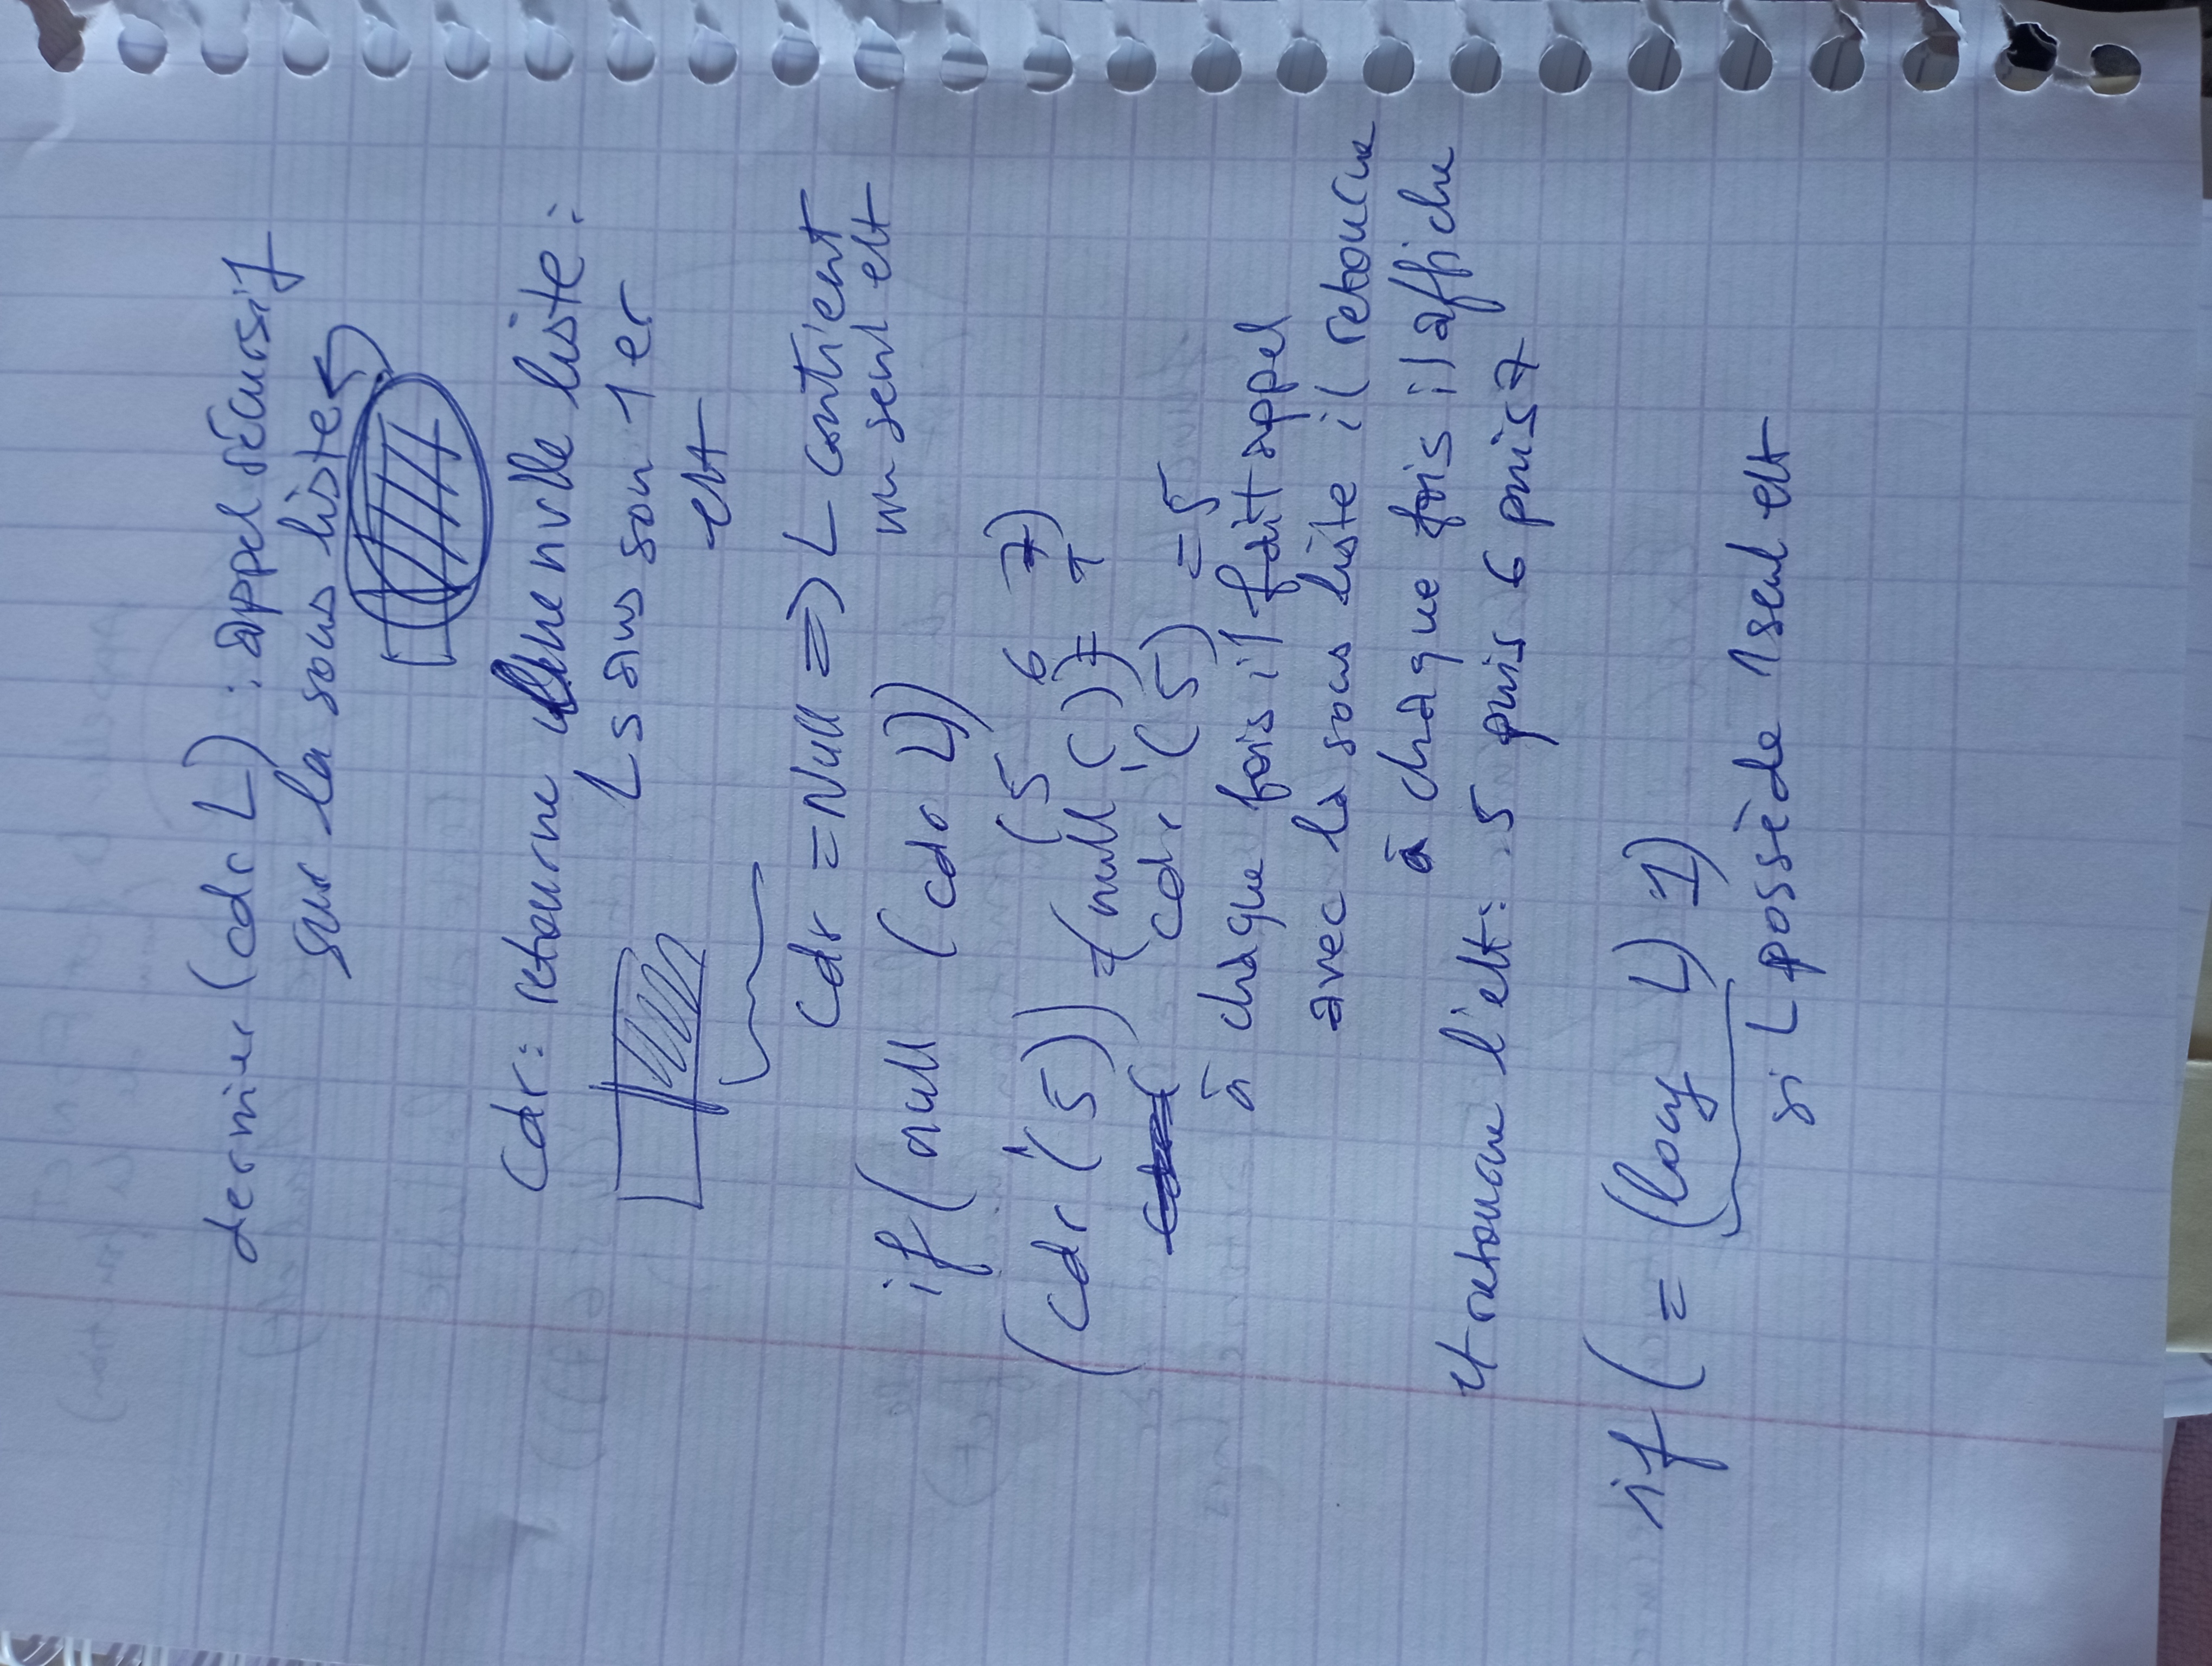 dernier (cdr L) : appel récursif
sur la sous liste
cdr : retourne une nvlle liste :
L sans son 1er
elt
cdr = Null => L contient
un seul elt
if (null (cdr L))
(5 6 7)
(cdr '(5)) = (null ()) =
cdr '(5) = 5
à chaque fois il fait appel
avec la sous liste il retourne
à chaque fois il affiche
retourne l'elt : 5 puis 6 puis 7
if (= (long L) 1)
si L possède 1 seul elt